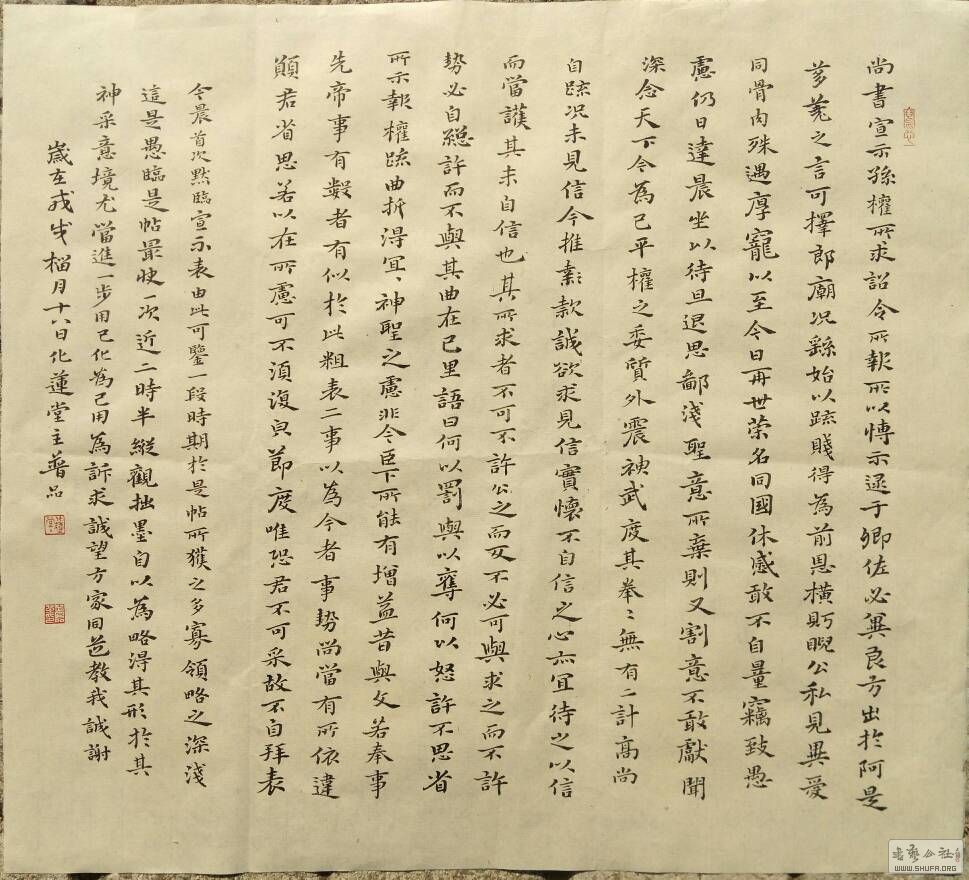 尚書宣示孫權所求詔令所報所以博示逮于卿佐必冀良方出於阿是
芻蕘之言可擇郎廟況繇始以疏賤得為前恩橫所睨公私見異愛
同骨肉殊遇厚寵以至今日再世榮名同國休慼敢不自量竊致愚
慮仍日達晨坐以待旦退思鄙淺聖意所棄則又割意不敢獻聞
深念天下今為已平權之委質外震神武度其拳〻無有二計高尚
自疏況未見信今推款誠欲求見信實懷不自信之心亦宜待之以信
而當護其未自信也其所求者不可不許公之而反不必可與求之而不許
勢必自絕許而不與其曲在己里語曰何以罰與以奪何以怒許不思省
所示報權疏曲折得宜神聖之慮非今臣下所能有增益昔與文若奉事
先帝事有數者有似於此粗表二事以為今者事勢尚當有所依違
願君省思若以在所慮可不須復貞節度唯恐君不可采故不自拜表
今晨首次點臨宣示表由此可鑒一段時期於是帖所獲之多寡領略之深淺
這是愚臨是帖最快一次近二時半縱觀拙墨自以為略得其形於其
神采意境尤當進一步用已化為己用為訴求誠望方家同道教我誠謝
歲在戊戌榴月十八日化蓮堂主普品
書藝公社
WWW.SHUFA.ORG